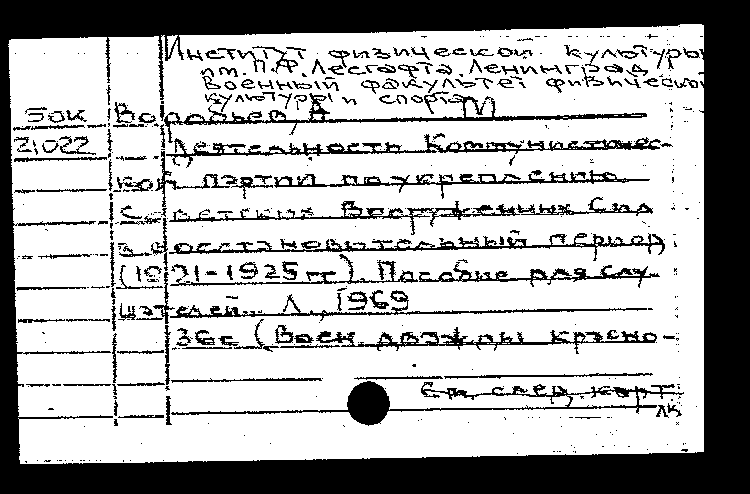 Институт физической культуры
им. П.Ф. Лесгафта. Ленинград
Военный факультет физической
культуры и спорта
Бок Воробьев, А М
21022 Деятельность Коммунистичес-
кой партии по укреплению
Советских Вооруженных Сил
в восстановительный период
(1921-1925 гг). Пособие для слу-
шателей... Л., 1969
36с (Воен. дважды красно-
См. след. карт